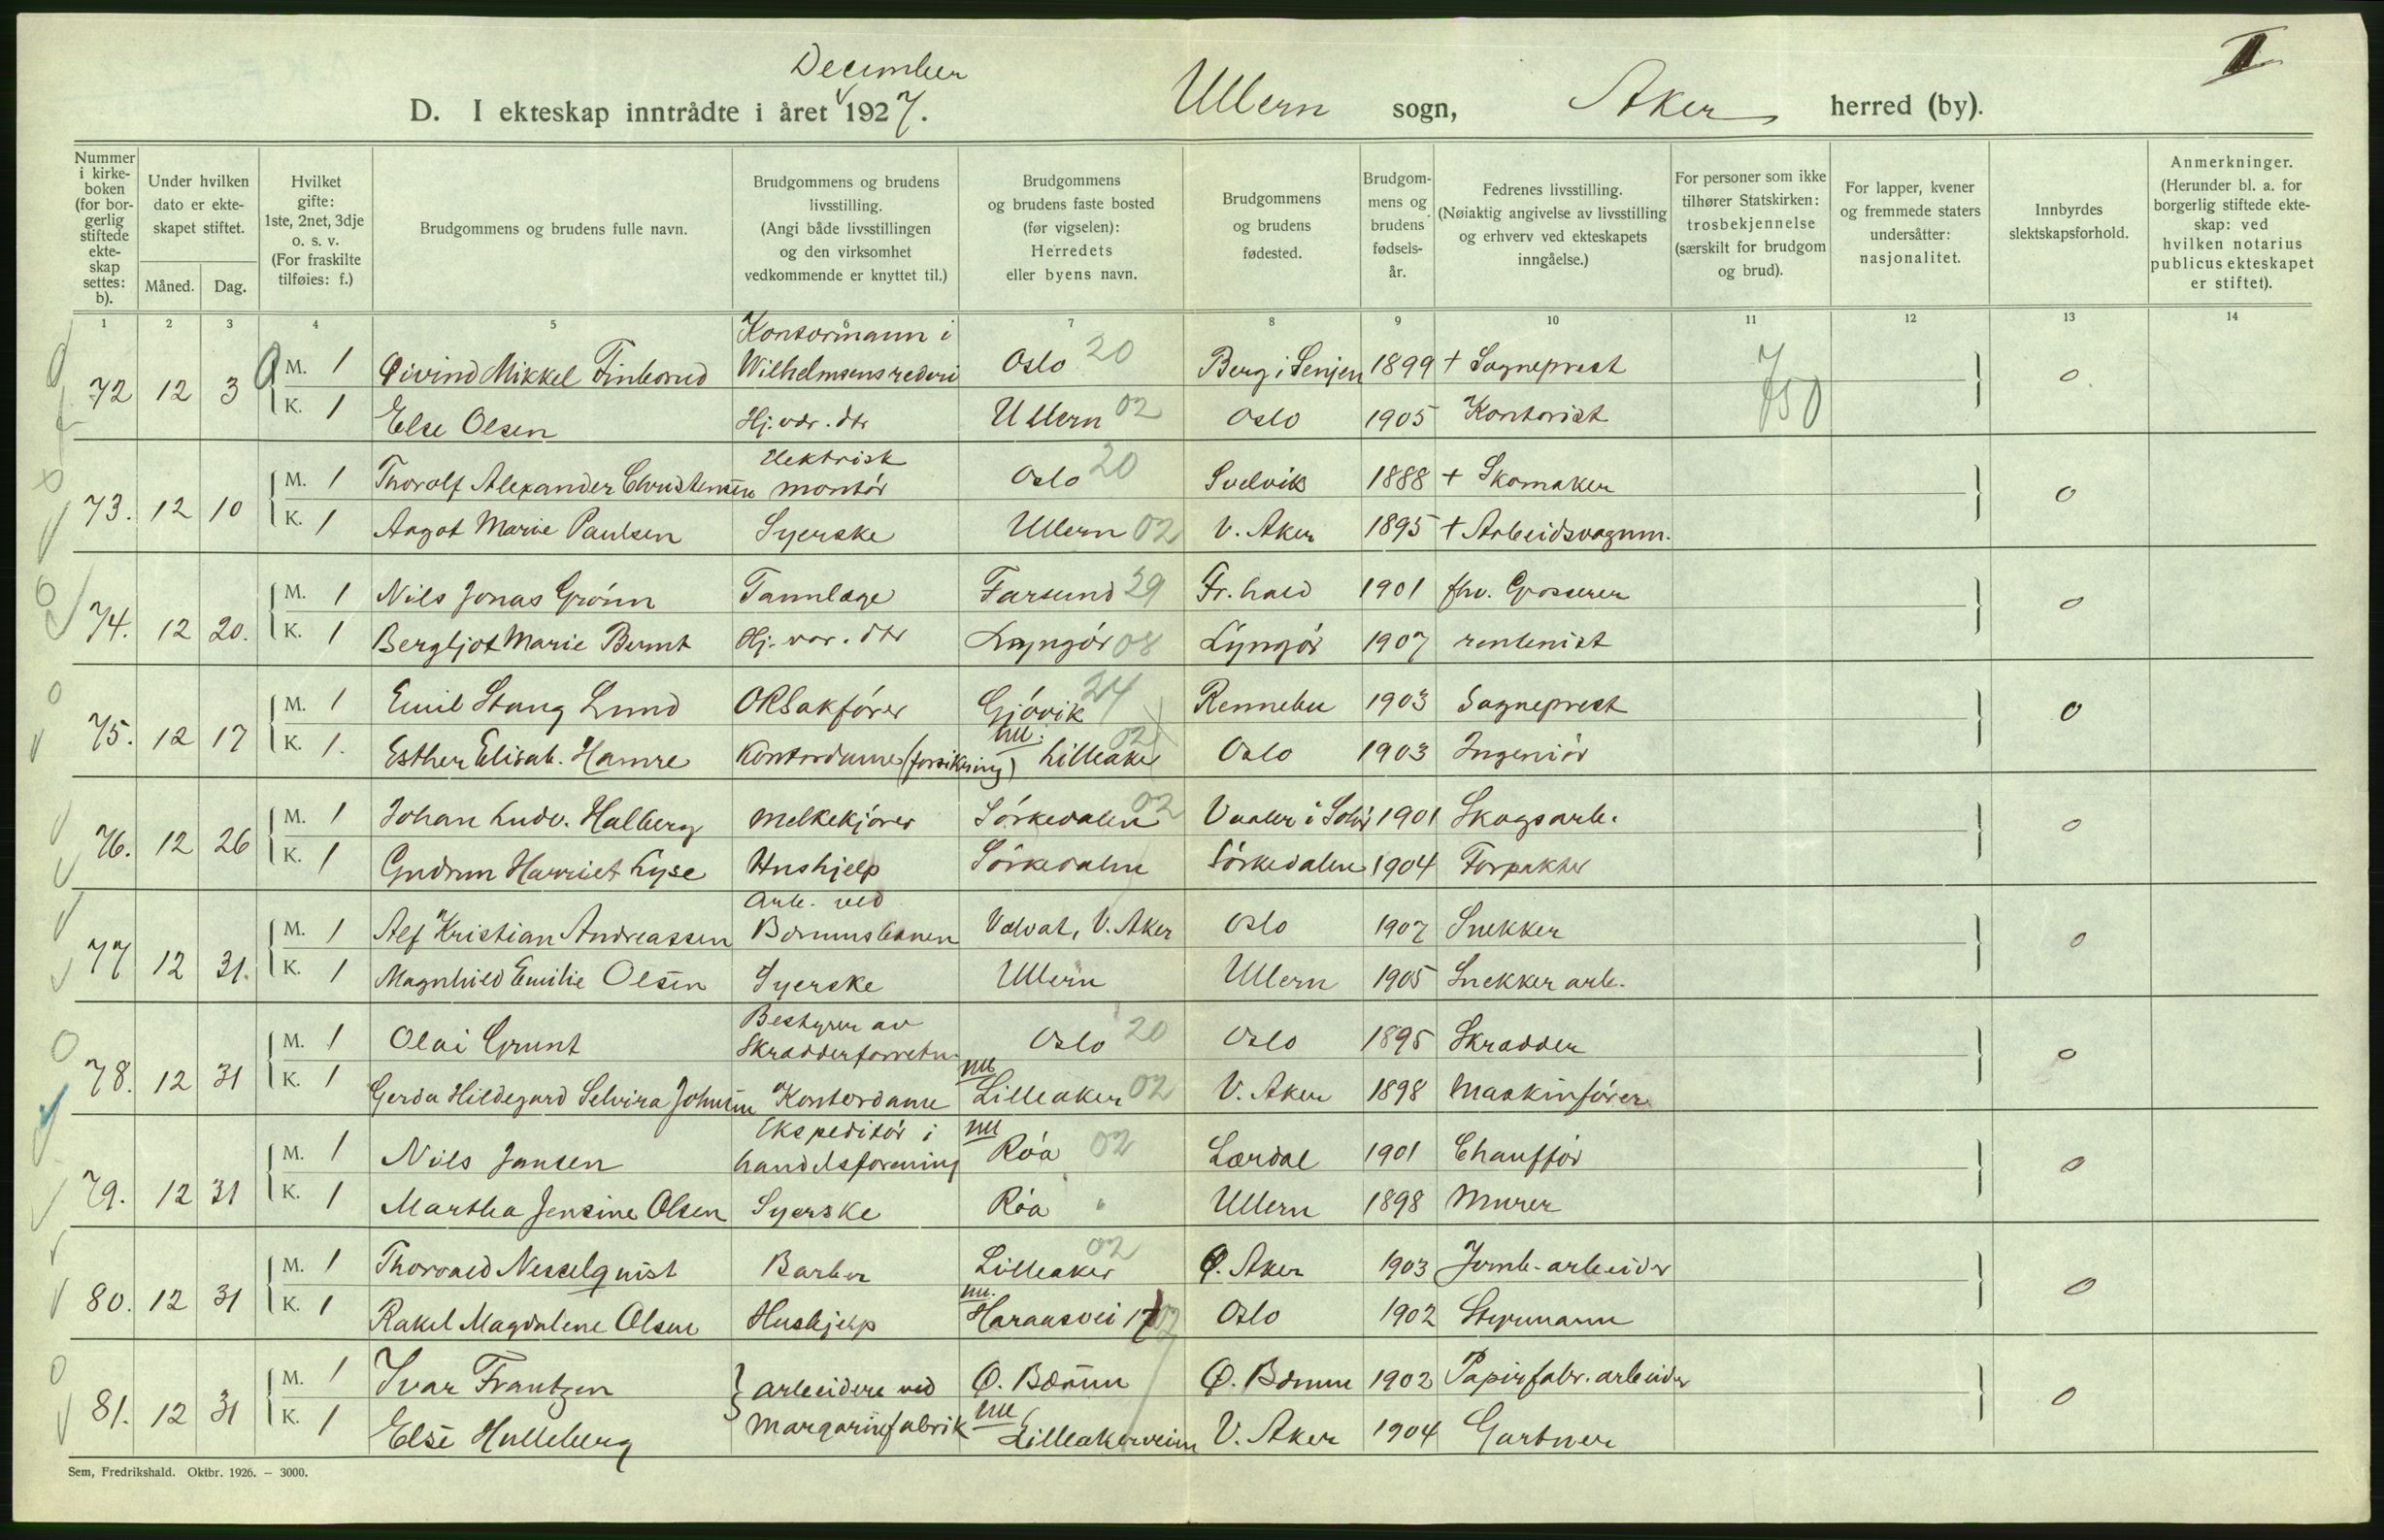 December
II
D. I ekteskap inntrådte i året 1927. Ullern sogn, Aker herred (by).
Nummer i kirkeboken (for borgerlig stiftede ekteskap settes: b).
Under hvilken dato er ekteskapet stiftet.
Måned. Dag.
Hvilket gifte: 1ste, 2net, 3dje o. s. v. (For fraskilte tilføies: f.)
Brudgommens og brudens fulle navn.
Brudgommens og brudens livsstilling. (Angi både livsstillingen og den virksomhet vedkommende er knyttet til.)
Brudgommens og brudens faste bosted (før vigselen): Herredets eller byens navn.
Brudgommens og brudens fødested.
Brudgommens og brudens fødselsår.
Fedrenes livsstilling. (Nøiaktig angivelse av livsstilling og erhverv ved ekteskapets inngåelse.)
For personer som ikke tilhører Statskirken: trosbekjennelse (særskilt for brudgom og brud).
For lapper, kvener og fremmede staters undersåtter: nasjonalitet.
Innbyrdes slektskapsforhold.
Anmerkninger. (Herunder bl. a. for borgerlig stiftede ekteskap: ved hvilken notarius publicus ekteskapet er stiftet).
1 2 3 4 5 6 7 8 9 10 11 12 13 14
72 12 3 M. 1 Øivind Mikkel Finborud Kontormann i Wilhelmsens rederi Oslo 20 Berg i Senjen 1899 + Sogneprest 0
K. 1 Else Olsen Hj. vær. dtr Ullern 02 Oslo 1905 Kontorist
73. 12 10 M. 1 Thorolf Alexander Christensen Elektrisk montör Oslo 20 Svelvik 1888 + Skomaker 0
K. 1 Aagot Marie Paulsen Syerske Ullern 02 V. Aker 1895 + Arbeidsvognm.
74. 12 20. M. 1 Nils Jonas Grönn Tannlæge Farsund 29 Fr. hald 1901 fhv. Grosserer 0
K. 1 Bergljot Marie Bernt Hj. vær. dtr Lyngör 08 Lyngör 1907 rentenist
75. 12 17 M. 1 Emil Stang Lund ORSakförer Gjövik 24 Rennebu 1903 Sogneprest 0
K. 1. Esther Elisab. Hamre Kontordame (forsikring) nu: Lilleaker 02 Oslo 1903 Ingeniör
76. 12 26 M. 1 Johan Ludv. Halberg Melkekjörer Sörkedalen 02 Vaaler i Solör 1901 Skogsarb. 0
K. 1 Gudrun Harriet Lyse Hushjelp Sörkedalen Sörkedalen 1904 Forpakter
77 12 31. M. 1 Alf Kristian Andreassen Arb. ved Bærumsbanen Volvat, V. Aker Oslo 1907 Snekker 0
K. 1 Magnhild Emilie Olsen Syerske Ullern Ullern 1905 Snekker arb.
78. 12 31 M. 1 Olai Grunt Bestyrer av Skrædderforretn. Oslo 20 Oslo 1895 Skrædder 0
K. 1 Gerda Hildegard Selvira Johnsen Kontordame nu Lilleaker 02 V. Aker 1898 Maskinförer
79. 12 31 M. 1 Nils Jansen Ekspeditör i handelsforening nu Röa 02 Lærdal 1901 Chafför 0
K. 1 Martha Jensine Olsen Syerske Röa " Ullern 1898 Murer
80. 12 31 M. 1 Thorvald Nesselquist Barber Lilleaker 02 Ø. Aker 1903 Jernb. arbeider 0
K. 1 Rakel Magdalene Olsen Hushjelp nu. Haraasvei 17 02 Oslo 1902 Styrmann
81. 12 31 M. 1 Ivar Frantzen arbeidere ved Ø. Bærum Ø. Bærum 1902 Papirfabr. arbeider 0
K. 1 Else Hulleberg Margarinfabrik nu Lilleakerveien V. Aker 1904 Gartner
Sem, Fredrikshald. Oktbr. 1926. – 3000.